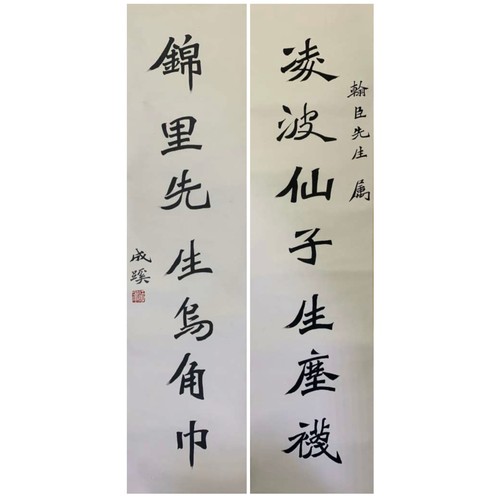 翰臣先生 属
凌波仙子生塵襪
錦里先生烏角巾
成蹊